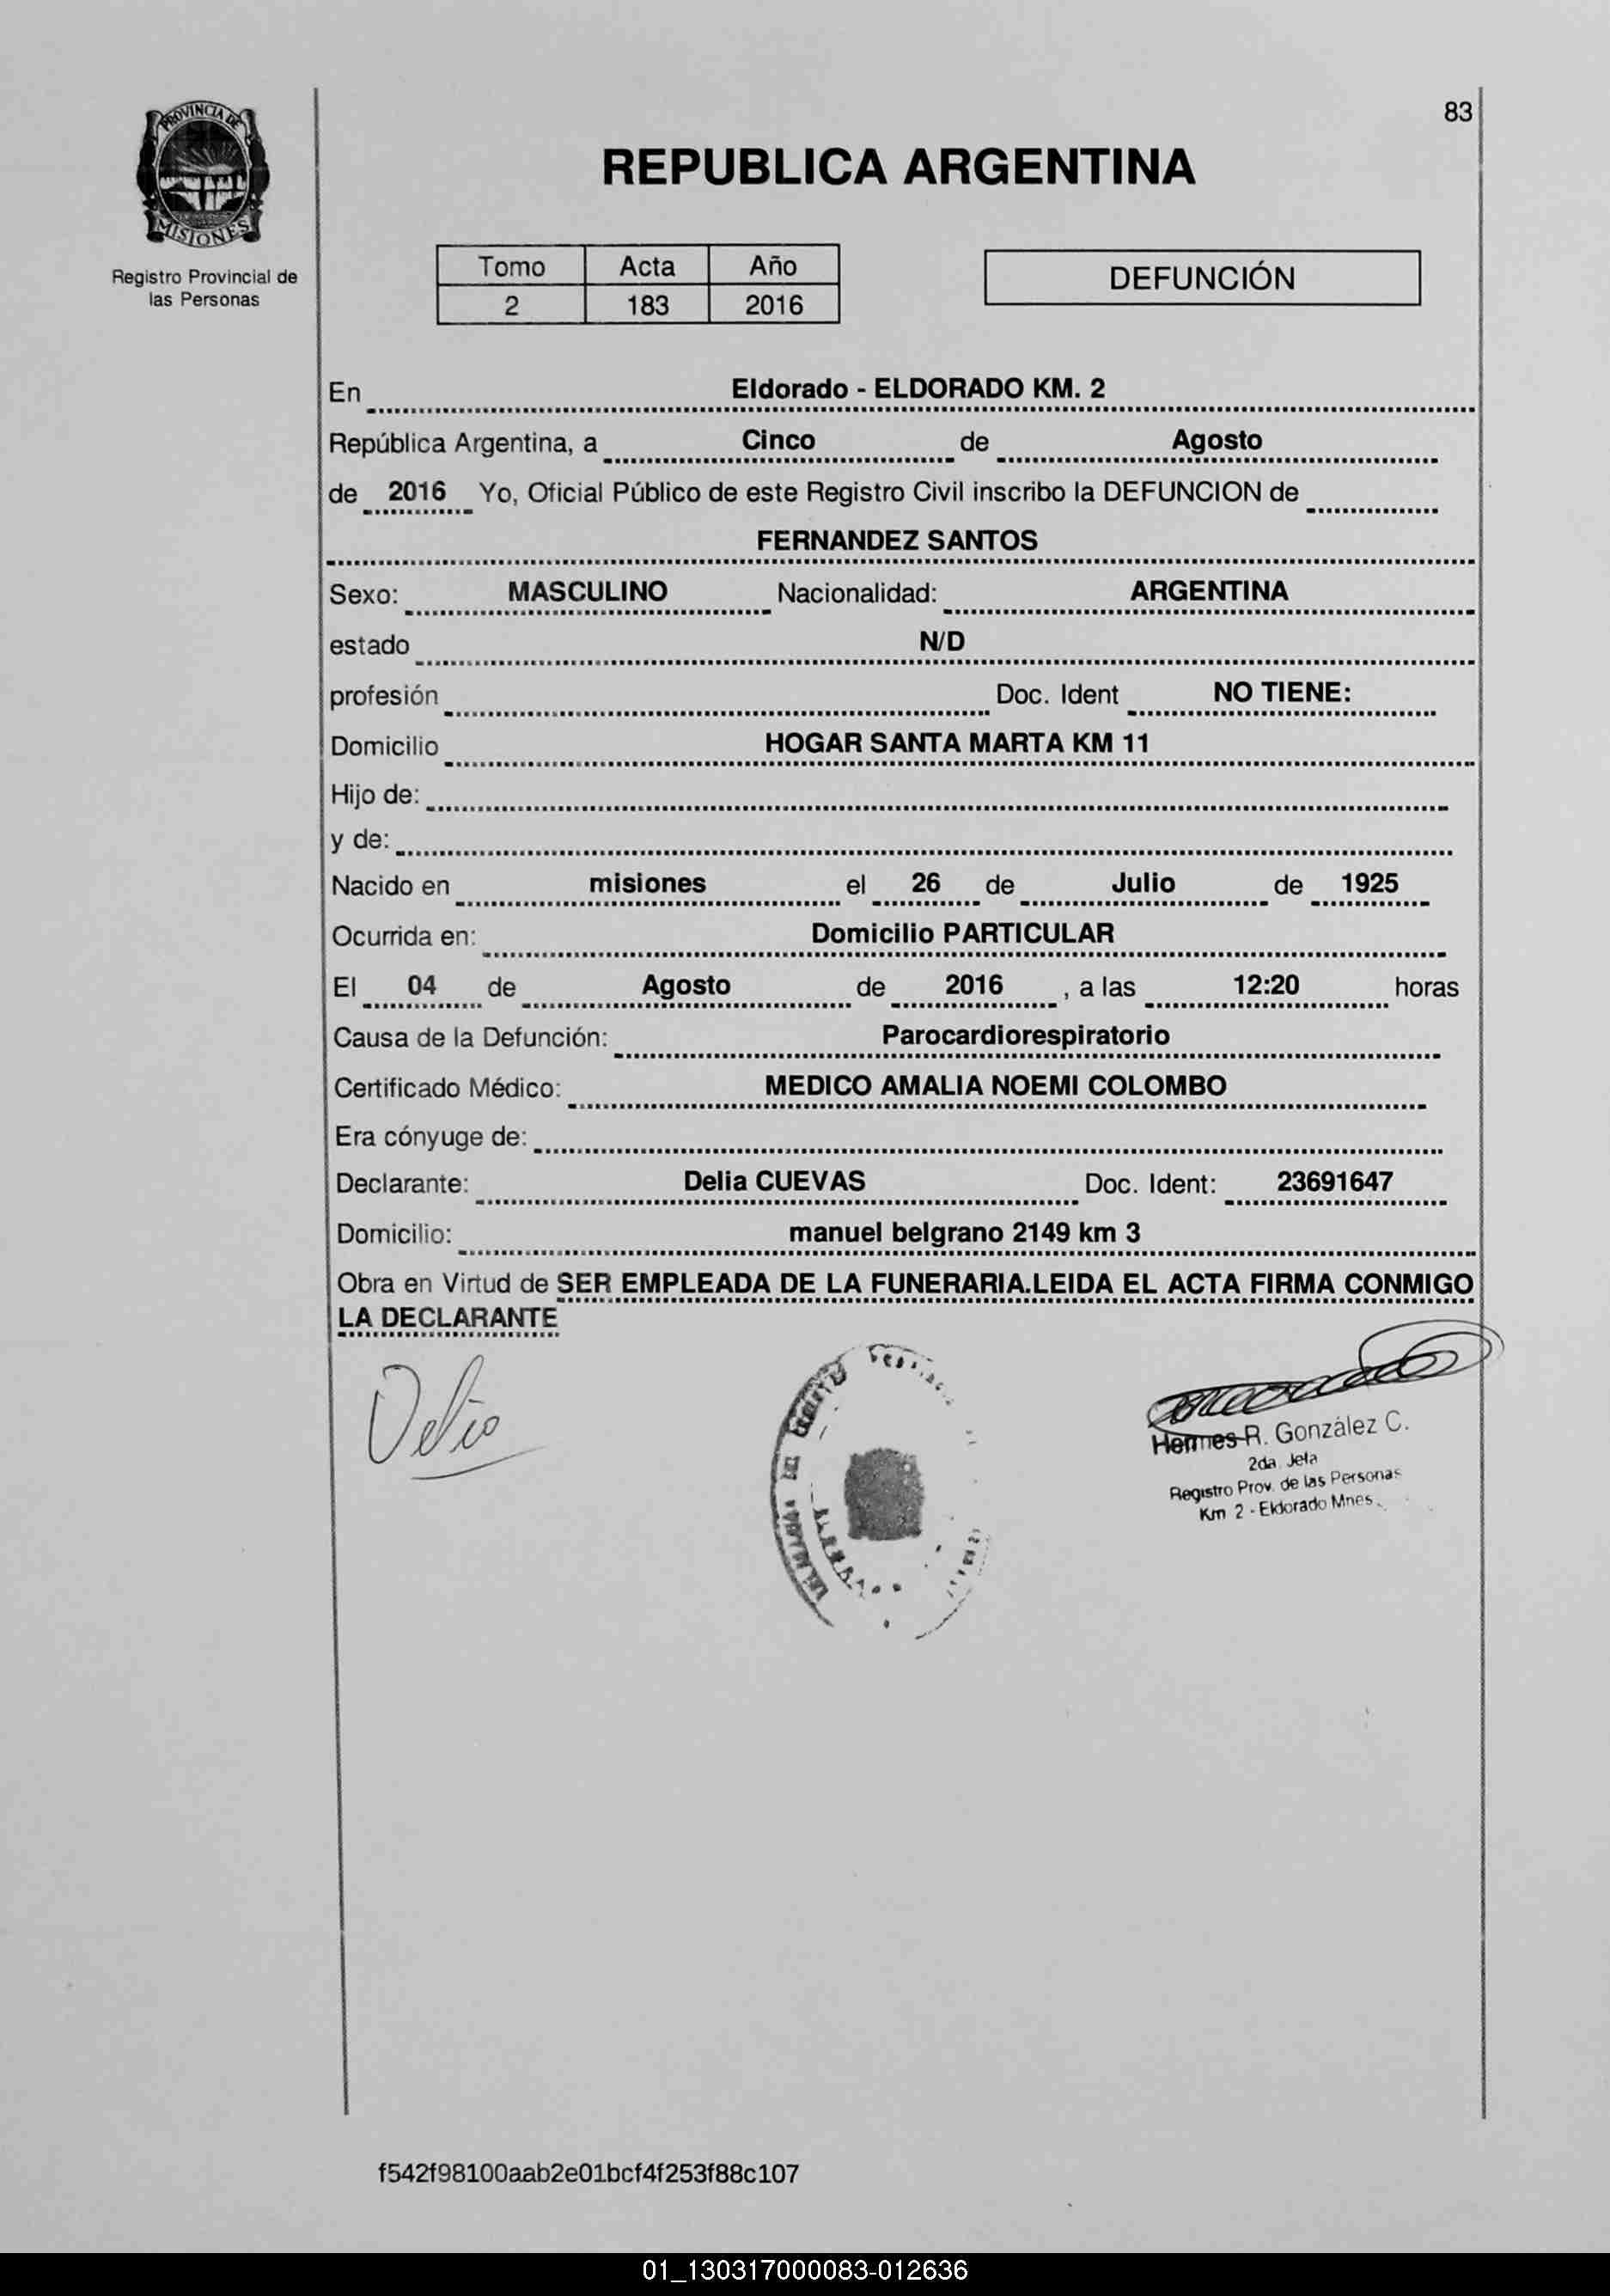 83
PROVINCIA DE
MISIONES
Registro Provincial de
las Personas
REPUBLICA ARGENTINA
Tomo Acta Año
2 183 2016
DEFUNCIÓN
En Eldorado - ELDORADO KM. 2
República Argentina, a Cinco de Agosto
de 2016 Yo, Oficial Público de este Registro Civil inscribo la DEFUNCION de
FERNANDEZ SANTOS
Sexo: MASCULINO Nacionalidad: ARGENTINA
estado N/D
profesión Doc. Ident NO TIENE:
Domicilio HOGAR SANTA MARTA KM 11
Hijo de:
y de:
Nacido en misiones el 26 de Julio de 1925
Ocurrida en: Domicilio PARTICULAR
El 04 de Agosto de 2016 , a las 12:20 horas
Causa de la Defunción: Parocardiorespiratorio
Certificado Médico: MEDICO AMALIA NOEMI COLOMBO
Era cónyuge de:
Declarante: Delia CUEVAS Doc. Ident: 23691647
Domicilio: manuel belgrano 2149 km 3
Obra en Virtud de SER EMPLEADA DE LA FUNERARIA.LEIDA EL ACTA FIRMA CONMIGO
LA DECLARANTE
Delia
Hermes R. González C.
2da. Jefa
Registro Prov. de las Personas
Km 2 - Eldorado Mnes.
f542f98100aab2e01bcf4f253f88c107
01_130317000083-012636